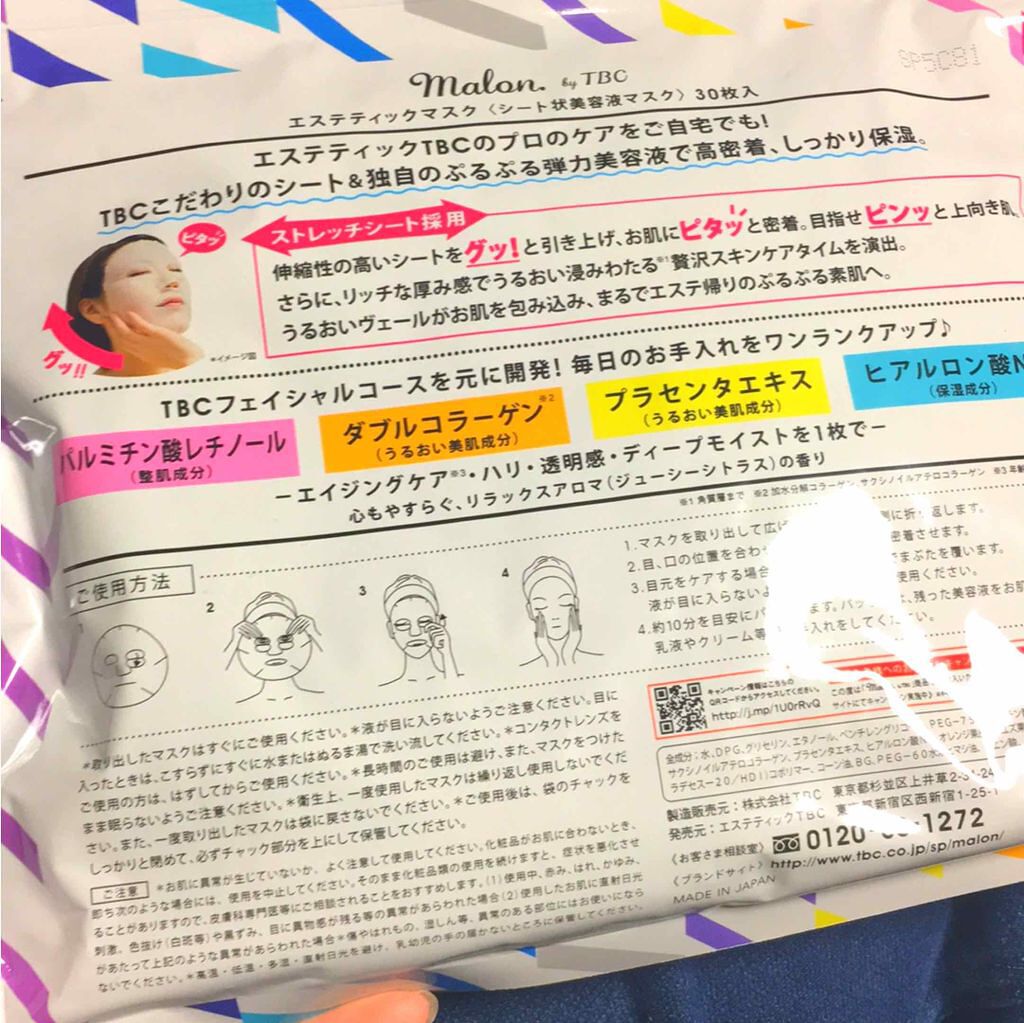 SP5C81
malon. by TBC
エステティックマスク〈シート状美容液マスク〉30枚入
エステティックTBCのプロのケアをご自宅でも!
TBCこだわりのシート&独自のぷるぷる弾力美容液で高密着、しっかり保湿。
ストレッチシート採用
ピタッ
伸縮性の高いシートをグッ!と引き上げ、お肌にピタッと密着。目指せピンッと上向き肌。
さらに、リッチな厚み感でうるおい浸みわたる※1贅沢スキンケアタイムを演出。
うるおいヴェールがお肌を包み込み、まるでエステ帰りのぷるぷる素肌へ。
グッ!!
*イメージ図
TBCフェイシャルコースを元に開発! 毎日のお手入れをワンランクアップ♪
パルミチン酸レチノール
(整肌成分)
ダブルコラーゲン※2
(うるおい美肌成分)
プラセンタエキス
(うるおい美肌成分)
ヒアルロン酸N
(保湿成分)
−エイジングケア※3・ハリ・透明感・ディープモイストを1枚で−
心もやすらぐ、リラックスアロマ(ジューシーシトラス)の香り
※1 角質層まで ※2 加水分解コラーゲン、サクシノイルアテロコラーゲン ※3 年齢
ご使用方法
1
2
3
4
1.マスクを取り出して広げ 側に折り返します。
2.目、口の位置を合わせ 密着させます。
3.目元をケアする場合 でまぶたを覆います。
液が目に入らないよ 使用ください。
4.約10分を目安に ます。 残った美容液をお肌
乳液やクリーム等 手入れをしてください。
*取り出したマスクはすぐにご使用ください。*液が目に入らないようご注意ください。目に
入ったときは、こすらずにすぐに水またはぬるま湯で洗い流してください。*コンタクトレンズを
ご使用の方は、はずしてからご使用ください。*長時間のご使用は避け、また、マスクをつけた
まま眠らないようご注意ください。*衛生上、一度使用したマスクは繰り返し使用しないでくだ
さい。また、一度取り出したマスクは袋に戻さないでください。*ご使用後は、袋のチャックを
しっかりと閉めて、必ずチャック部分を上にして保管してください。
ご注意 *お肌に異常が生じていないか、よく注意して使用してください。化粧品がお肌に合わないとき、
即ち次のような場合には、使用を中止してください。そのまま化粧品類の使用を続けますと、症状を悪化させ
ることがありますので、皮膚科専門医等にご相談されることをおすすめします。(1)使用中、赤み、はれ、かゆみ、
刺激、色抜け(白斑等)や黒ずみ、目に異物感が残る等の異常があらわれた場合(2)使用したお肌に直射日光
があたって上記のような異常があらわれた場合*傷やはれもの、湿しん等、異常のある部位にはお使いになら
ないでください。*高温・低温・多湿・直射日光を避け、乳幼児の手の届かないところに保管してください。
キャンペーン情報はこちらの
QRコードからアクセスしてください。
http://j.mp/1U0rRvQ
この度は
サイトにてキャンペーン実施中
全成分:水、DPG、グリセリン、エタノール、ペンチレングリコ PEG-75
サクシノイルアテロコラーゲン、プラセンタエキス、ヒアルロン酸 オレンジ果
ラデセス-20/HDI)コポリマー、コーン油、BG、PEG-60水 ヒマシ油
製造販売元:株式会社TBC 東京都杉並区上井草2-34-24
発売元:エステティックTBC 東 都新宿区西新宿1-25-1
《お客さま相談室》 0120- -1272
《ブランドサイト》 http://www.tbc.co.jp/sp/malon/
MADE IN JAPAN